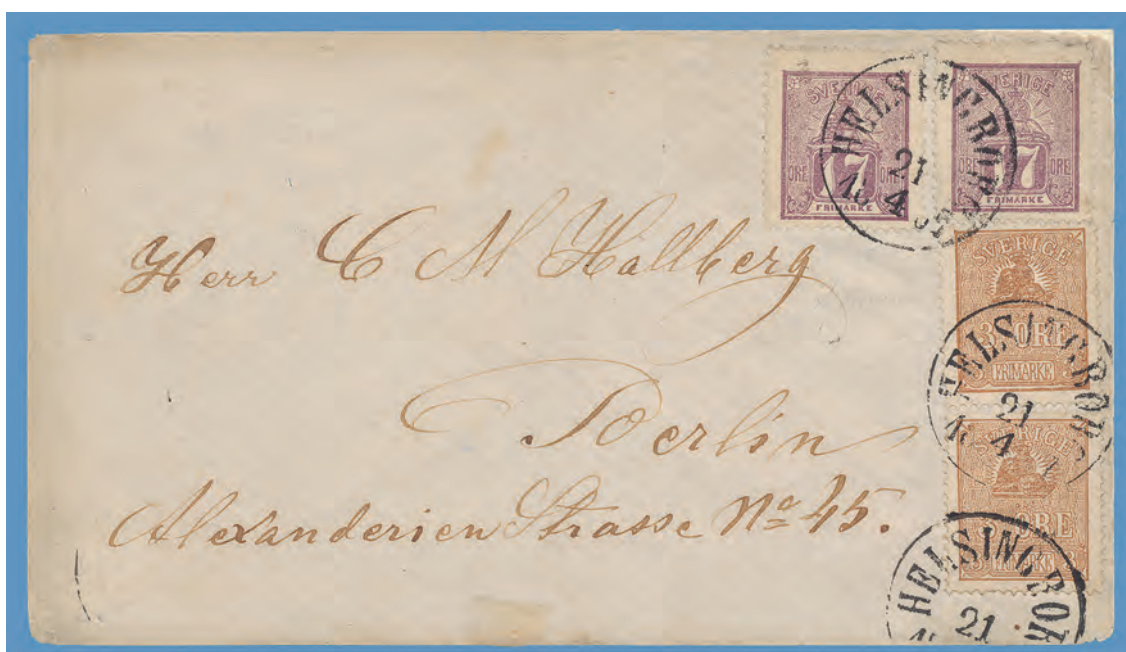 SVERIGE
ÖRE 17 ÖRE
FRIMÄRKE
SVERIGE
ÖRE 17 ÖRE
FRIMÄRKE
HELSINGBORG
21
4
SVERIGE
3 ÖRE
3 FRIMÄRKE 3
HELSINGBORG
21
4
SVERIGE
3 ÖRE
3 FRIMÄRKE 3
HELSINGBOR
21
Herr C M Hallberg
Berlin
Alexanderien Strasse No 45.